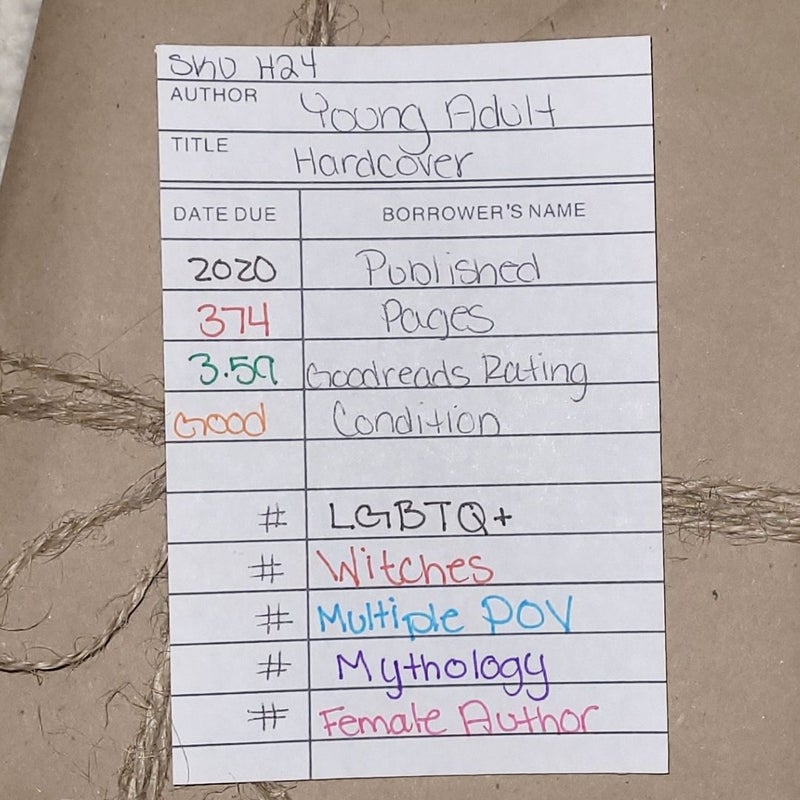 SKU H24
AUTHOR Young Adult
TITLE Hardcover
DATE DUE BORROWER'S NAME
2020 Published
374 Pages
3.59 Goodreads Rating
Good Condition
# LGBTQ+
# Witches
# Multiple POV
# Mythology
# Female Author